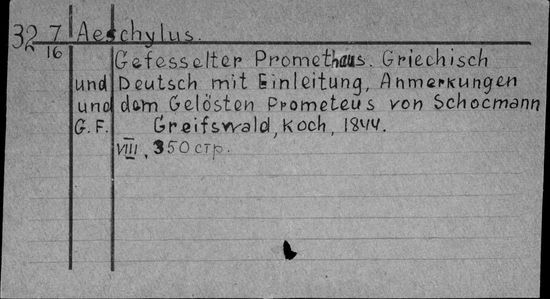 32 7/16 Aeschylus.
Gefesselter Promethaus. Griechisch
und Deutsch mit Einleitung, Anmerkungen
und dem Gelösten Prometeus von Schocmann
G. F. Greifswald, Koch, 1844.
VIII, 350 стр.